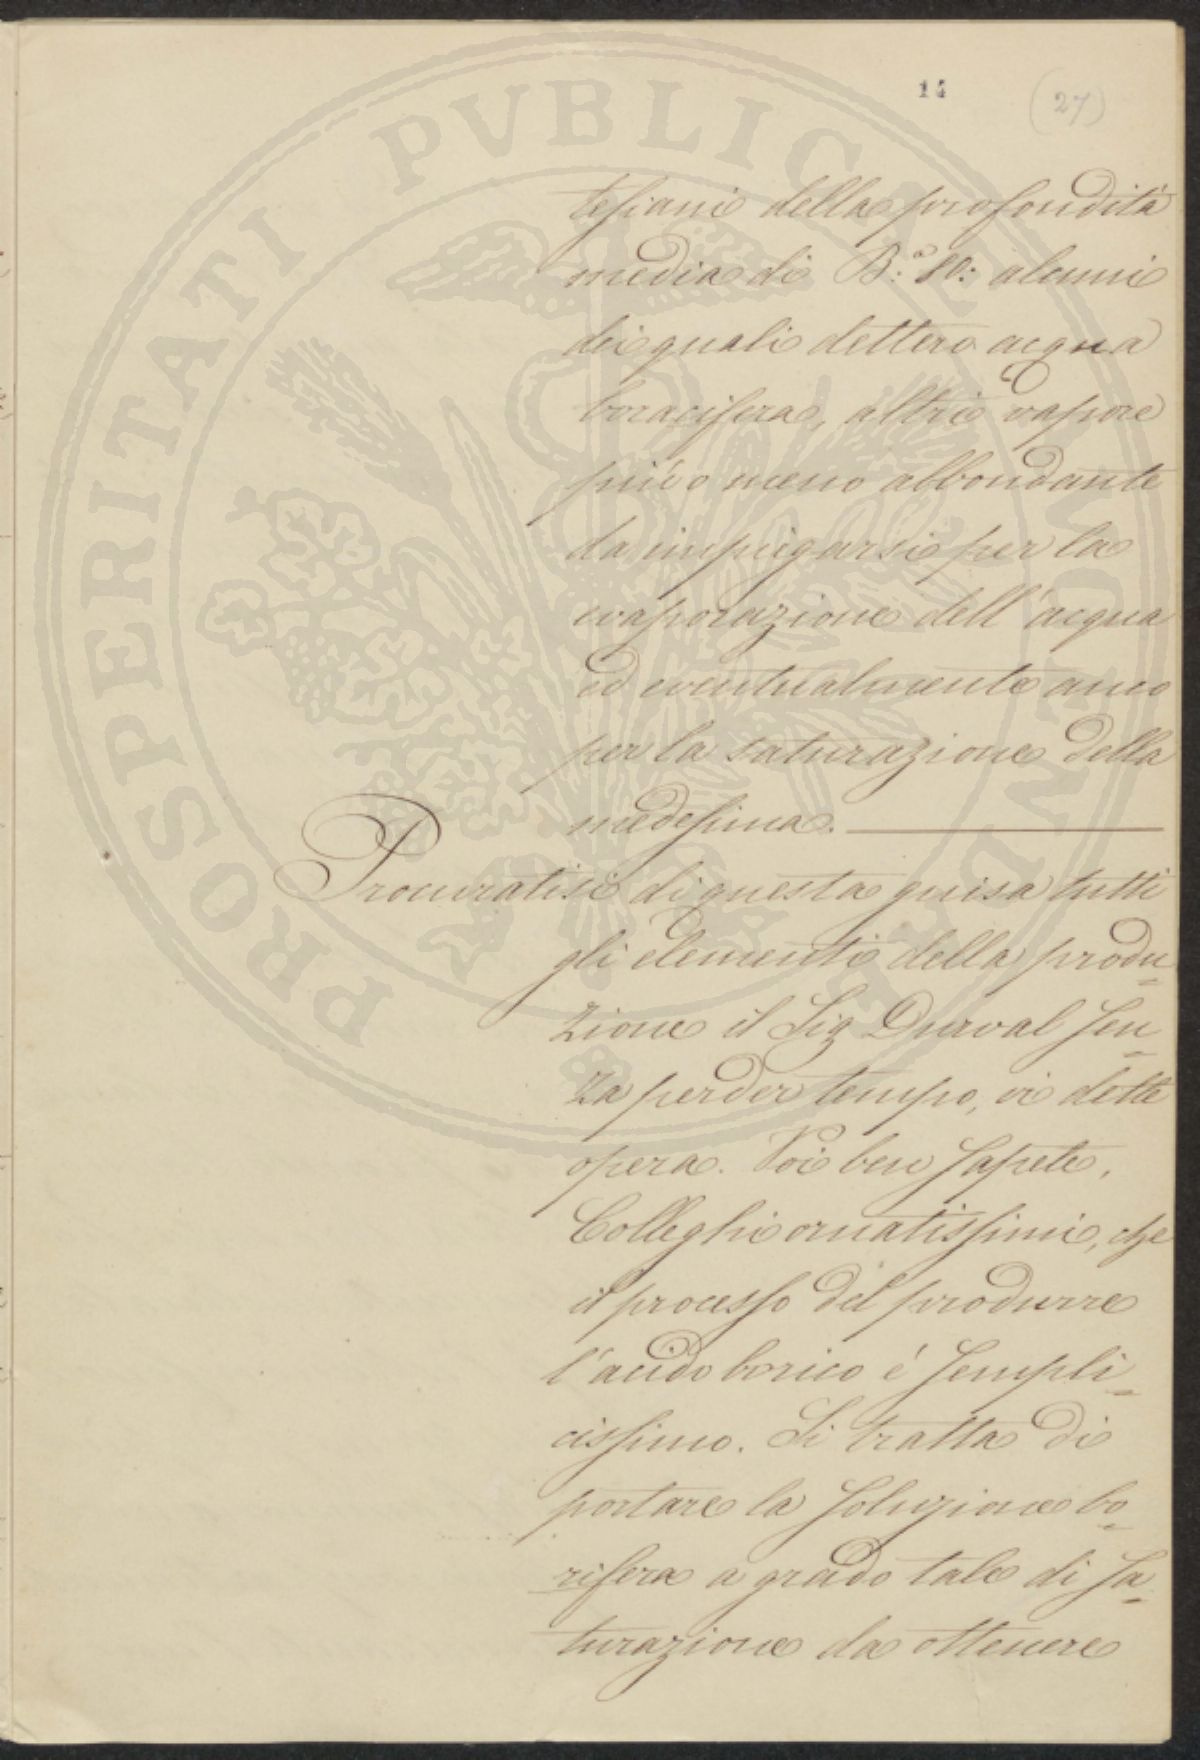 14 (27)
tesiani della profondità
media di B.ª 80: alcuni
dei quali dettero acqua
boracifera, altri vapore
più o meno abbondante
da impiegarsi per la
evaporazione dell'acqua
ed eventualmente anco
per la saturazione della
medesima.
Procuratisi di questa guisa tutti
gli elementi della produ-
zione il Sig Durval sen-
za perder tempo, vi dette
opera. Voi ben sapete,
Colleghi ornatissimi, che
il processo del produrre
l'acido borico é sempli-
cissimo. Si tratta di
portare la soluzione bo-
rifera a grado tale di sa-
turazione da ottenere
PROSPERITATI PVBLICAE AVGENDAE